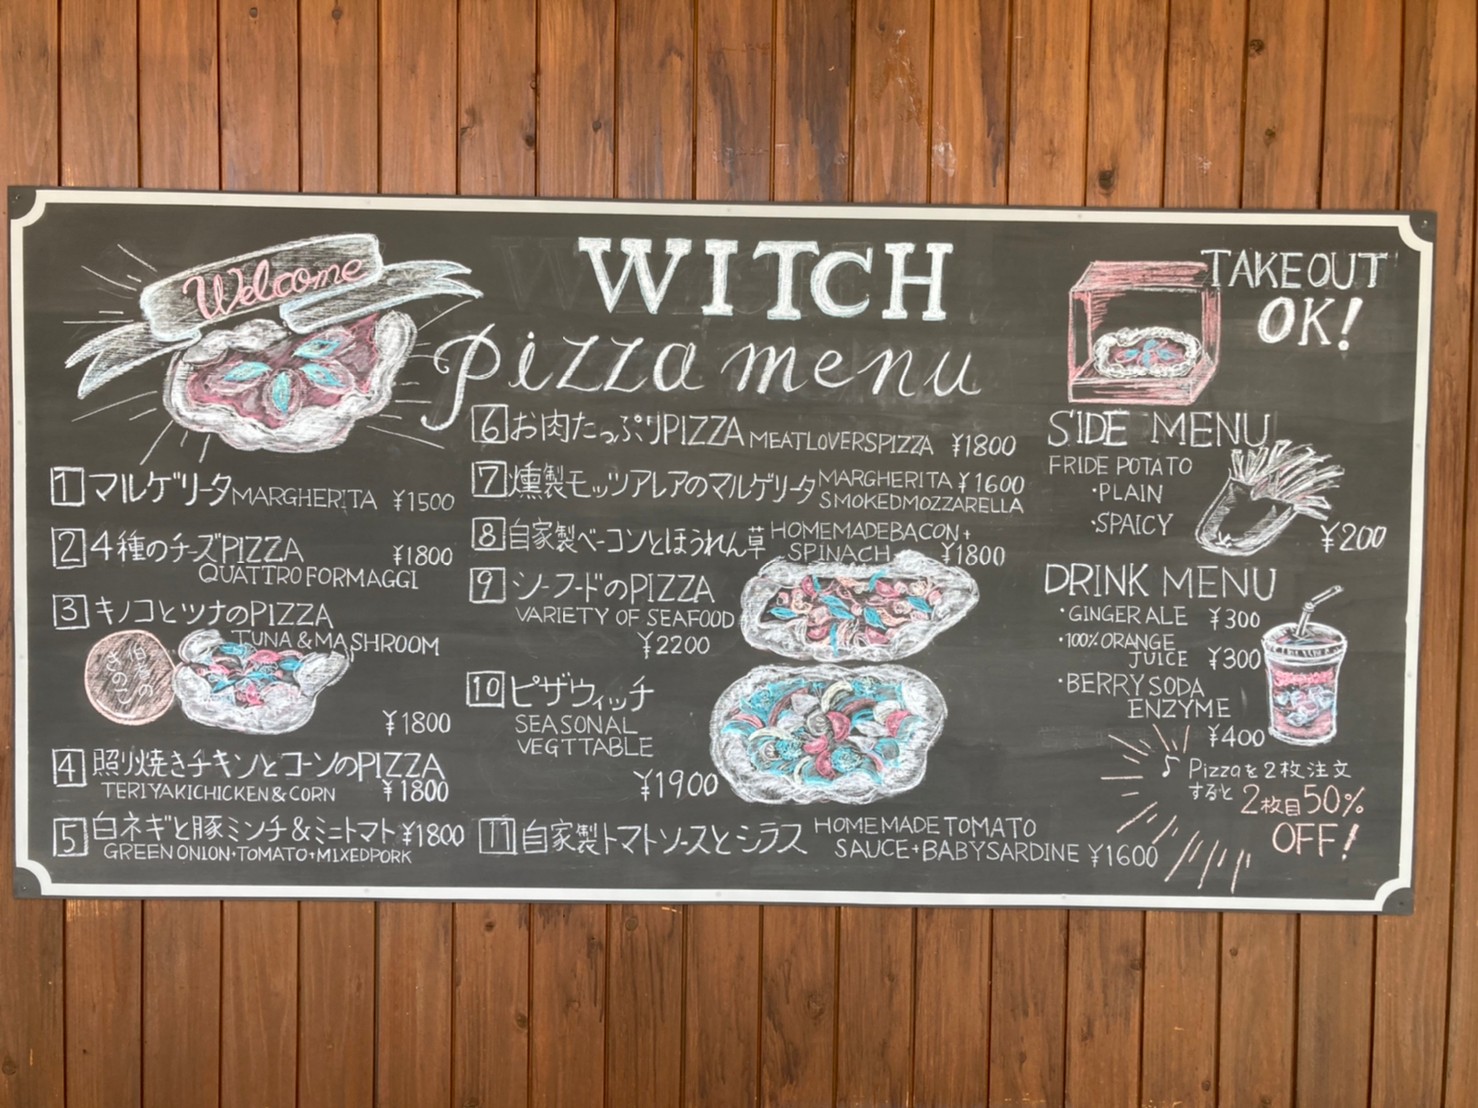 Welcome
WITCH
pizza menu
1 マルゲリータ MARGHERITA ¥1500
2 4種のチーズPIZZA ¥1800
QUATTRO FORMAGGI
3 キノコとツナのPIZZA
TUNA & MASHROOM
¥1800
4 照り焼きチキンとコーンのPIZZA
TERIYAKICHICKEN & CORN ¥1800
5 白ネギと豚ミンチ&ミニトマト ¥1800
GREEN ONION・TOMATO+MIXED PORK
6 お肉たっぷりPIZZA MEATLOVERSPIZZA ¥1800
7 燻製モッツアレアのマルゲリータ MARGHERITA ¥1600
SMOKED MOZZARELLA
8 自家製ベーコンとほうれん草 HOMEMADE BACON+
SPINACH ¥1800
9 シーフードのPIZZA
VARIETY OF SEAFOOD
¥2200
10 ピザウィッチ
SEASONAL
VEGTTABLE
¥1900
11 自家製トマトソースとシラス HOMEMADE TOMATO
SAUCE+BABY SARDINE ¥1600
TAKE OUT
OK!
SIDE MENU
FRIDE POTATO
・PLAIN
・SPAICY
¥200
DRINK MENU
・GINGER ALE ¥300
・100% ORANGE
JUICE ¥300
・BERRY SODA
ENZYME
¥400
♪ Pizzaを2枚注文
すると 2枚目50%
OFF!